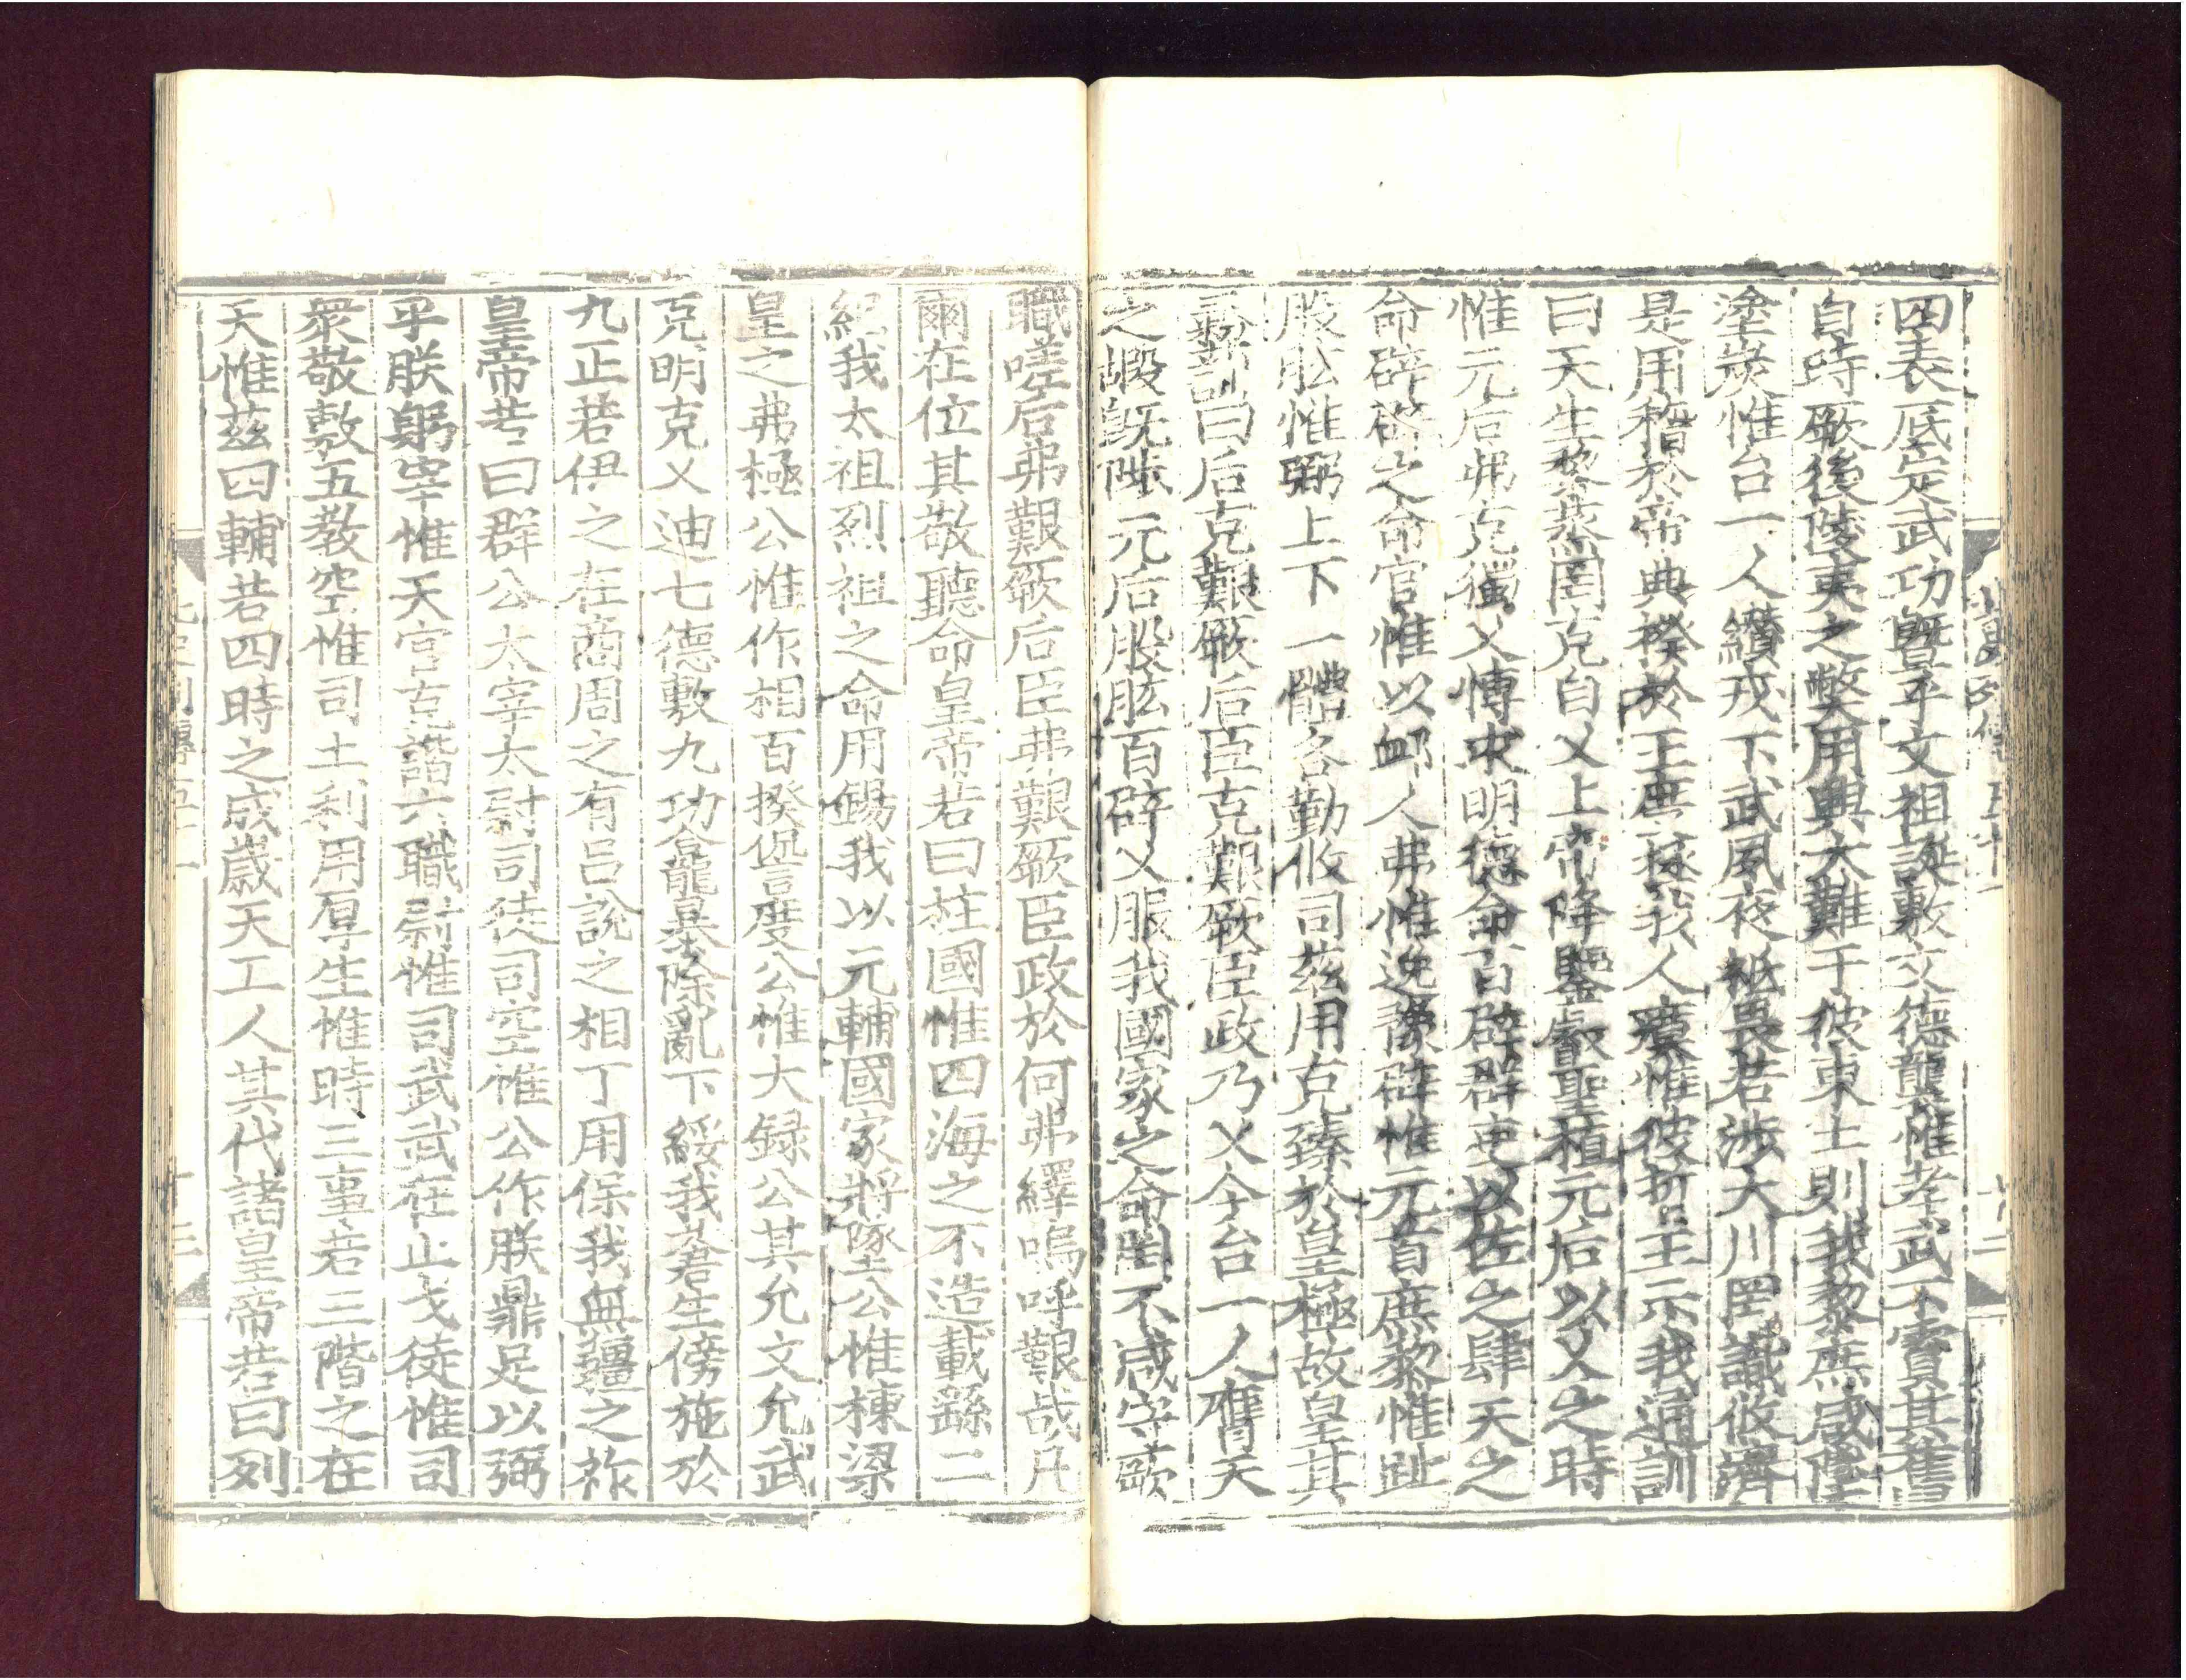 四表底定武功曁乎文祖誕敷文德龔惟孝武不賫其舊
自時厥後陵夷之弊用興大難于彼東土則我黎庶咸墜
塗炭惟台一人纘戎下武夙夜祗畏若涉大川罔識攸濟
是用稽於帝典揆於王庭拯我人瘼惟彼哲王示我通訓
曰天生黎蒸罔克自乂上帝降鑒叡聖植元后以乂之時
惟元后弗克獨乂博求明德命百辟群吏以佐之肆天之
命辟辟之命官惟以卹人弗惟逸豫辟惟元首庶黎惟趾
股肱惟弼上下一體各勤攸司茲用克臻於皇極故皇其
彝訓曰后克艱厥后臣克艱厥臣政乃乂今台一人膺天
之嘏既陟元后股肱百辟乂服我國家之命罔不咸守厥
職嗟后弗艱厥后臣弗艱厥臣政於何弗繹嗚呼艱哉凡
爾在位其敬聽命皇帝若曰柱國惟四海之不造載繇二
紀我太祖烈祖之命用錫我以元輔國家將墜公惟棟梁
皇之弗極公惟作相百揆諐度公惟大録公其允文允武
克明克乂迪七德敷九功龕暴除亂下綏我蒼生傍施於
九正若伊之在商周之有呂說之相丁用保我無疆之祚
皇帝若曰群公太宰太尉司徒司空惟公作朕鼎足以弼
乎朕躬宰惟天官克諧六職尉惟司武武在止戈徒惟司
衆敬敷五教空惟司土利用厚生惟時三事若三階之在
天惟茲四輔若四時之成歲天工人其代諸皇帝若曰列